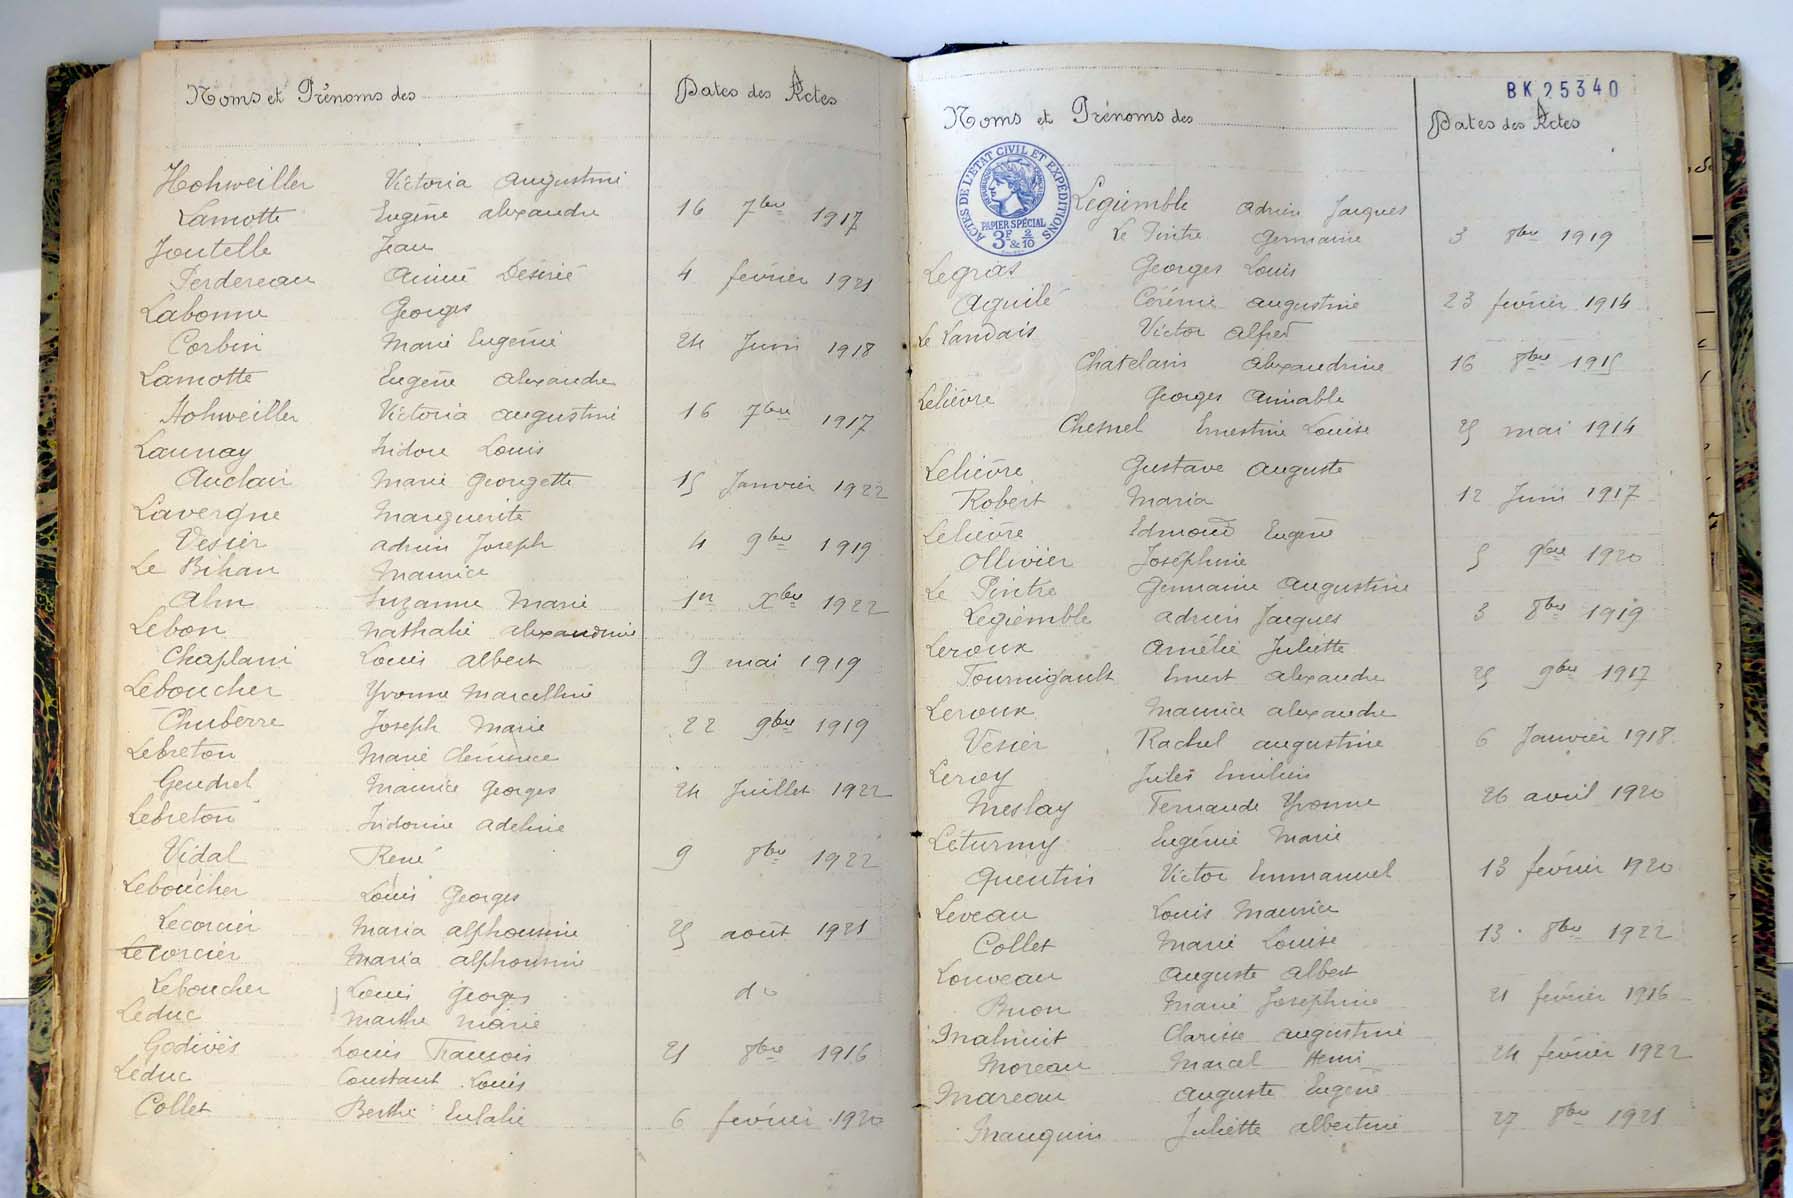 Noms et Prénoms des
Dates des Actes
Hohweiller Victoria Augustine
Lamotte Eugène Alexandre 16 7bre 1917
Joutelle Jean
Perdereau Aimée Désirée 4 février 1921
Labonne Georges
Corbin Marie Eugénie 24 Juin 1918
Lamotte Eugène Alexandre
Hohweiller Victoria Augustine 16 7bre 1917
Launay Isidore Louis
Auclair Marie Georgette 15 Janvier 1922
Lavergne Marguerite
Vesier Adrien Joseph 4 9bre 1919
Le Bihan Maurice
Alin Suzanne Marie 1er Xbre 1922
Lebon Nathalie Alexandrine
Chaplain Louis Albert 9 mai 1919
Leboucher Yvonne Marcelline
Chubérre Joseph Marie 22 9bre 1919
Lebreton Marie Clémence
Gendrel Maurice Georges 24 Juillet 1922
Lebreton Isidorine Adeline
Vidal René 9 8bre 1922
Leboucher Louis Georges
Lecorcier Maria Alphonsine 25 août 1921
Lecorcier Maria Alphonsine
Leboucher Louis Georges do
Leduc Marthe Marie
Godivès Louis François 21 8bre 1916
Leduc Constant Louis
Collet Berthe Eulalie 6 février 1920
BK 25340
Noms et Prénoms des
Dates des Actes
ACTES DE L'ÉTAT CIVIL ET EXPÉDITIONS
PAPIER SPÉCIAL
3F & 2/10
Legiemble Adrien Jacques
Le Pintre Germaine 3 8bre 1919
Legras Georges Louis
Aiguilé Cérénie Augustine 23 février 1914
Le Landais Victor Alfred
Chatelain Alexandrine 16 8bre 1915
Lelièvre Georges Aimable
Chesnel Ernestine Louise 25 mai 1914
Lelièvre Gustave Auguste
Robert Maria 12 Juin 1917
Lelièvre Edmond Eugène
Ollivier Joséphine 5 9bre 1920
Le Pintre Germaine Augustine
Legiemble Adrien Jacques 3 8bre 1919
Leroux Amélie Juliette
Fournigault Ernest Alexandre 25 9bre 1917
Leroux Maurice Alexandre
Vesier Rachel Augustine 6 Janvier 1918
Leroy Jules Emilien
Meslay Fernande Yvonne 26 avril 1920
Léturmy Eugénie Marie
Quentin Victor Emmanuel 13 février 1920
Leveau Louis Maurice
Collet Marie Louise 13 8bre 1922
Louveau Auguste Albert
Buon Marie Josephine 21 février 1916
Malnuit Clarisse Augustine
Moreau Marcel Henri 24 février 1922
Mareau Auguste Eugène
Mauguin Juliette Albertine 27 8bre 1921